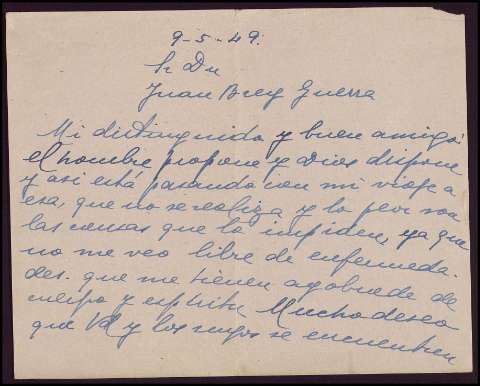 9-5-49:
Sr Dn
Juan Brey Guerra
Mi distinguido y buen amigo:
el hombre propone y Dios dispone
y asi está pasando con mi viaje a
esa, que no se realiza y lo peor son
las causas que lo impiden, ya que
no me veo libre de enfermeda-
des. que me tienen agobiado de
cuerpo y espiritu. Mucho deseo
que Vd y los suyos se encuentren